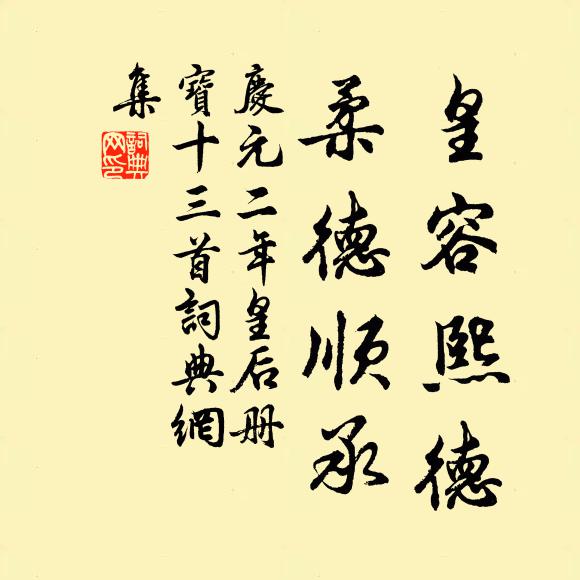 皇容熙德
柔德順承
慶元二年皇后册
寶十三首詞典網
集
詞典网印